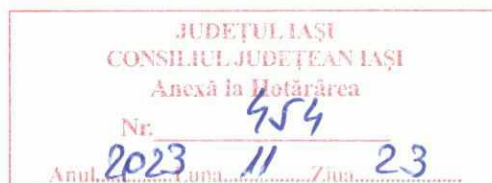 JUDEȚUL IAȘI
CONSILIUL JUDEȚEAN IAȘI
Anexă la Hotărârea
Nr. 454
Anul 2023 Luna 11 Ziua 23